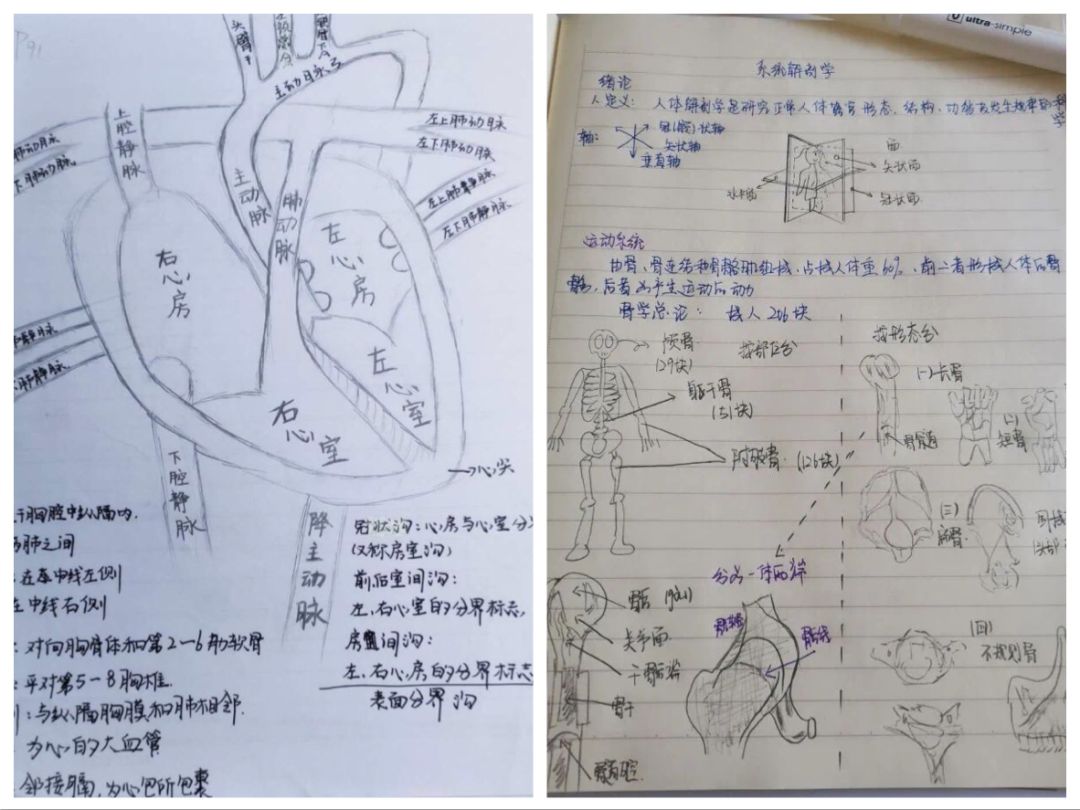 P91
头臂干
主动脉弓
上腔静脉
左上肺动脉
左下肺动脉
肺动脉
下肺动脉
主动脉
肺动脉
左上肺静脉
左下肺静脉
右心房
左心房
左心室
右心室
肺静脉
心尖
下腔静脉
降主动脉
于胸腔中纵隔内.
两肺之间
在中线左侧
在中线右侧
:对向胸骨体和第2—6肋软骨
:平对第5-8胸椎.
:与纵隔胸膜和肺相邻.
为心的大血管
邻接膈,为心包所包裹
冠状沟:心房与心室分
(又称房室沟)
前后室间沟:
左、右心室的分界标志,
房间沟:
左、右心房的分界标志
表面分界沟
ultra-simple
系统解剖学
绪论
人体解剖学是研究正常人体器官形态、结构、功能及发生规律的科学
定义:
轴:
冠(额)状轴
矢状轴
垂直轴
面
矢状面
冠状面
水平面
运动系统
由骨、骨连结和骨骼肌组成,占成人体重60%,前二者形成人体的骨
骼,后者为产生运动的动
骨学总论: 成人206块
颅骨
(29块)
按部位分
躯干骨
(51块)
附肢骨 (126块)
按形态分
(一)长骨
骨髓
(二)
短骨
(三)
扁骨
(四)
不规则骨
分为一体两端
骨骺
关节面
干骺端
骨干
骺线
骨髓腔